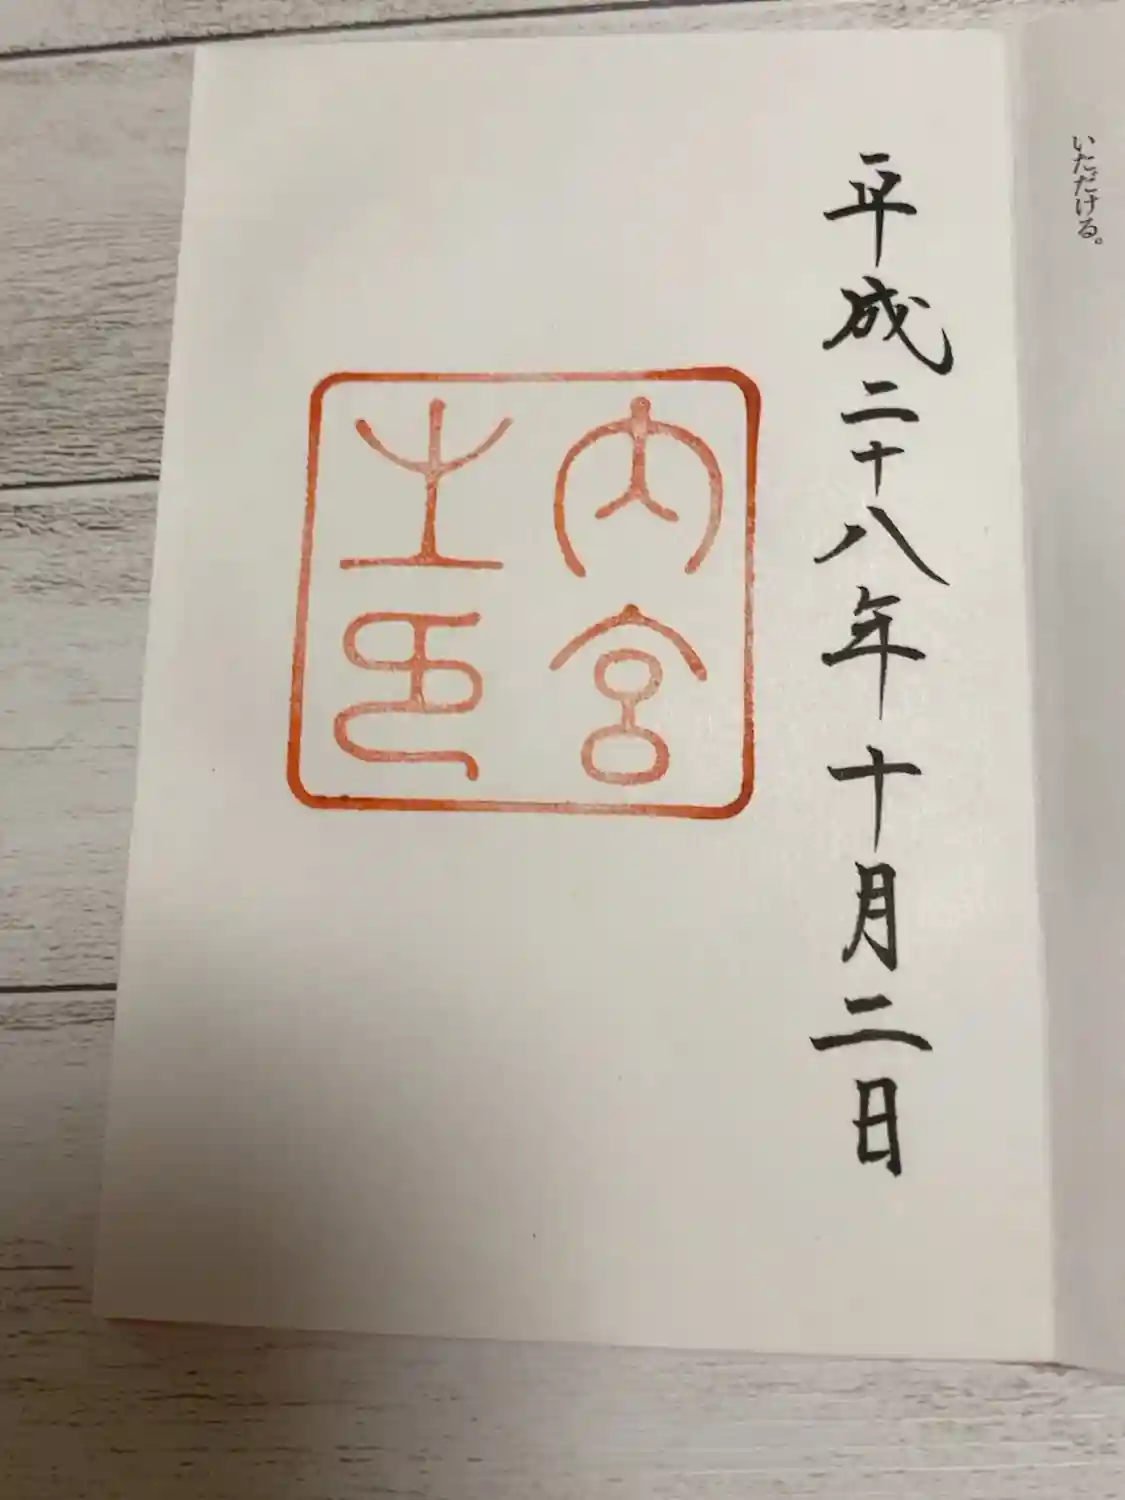 いただける。
平成二十八年十月二日
内宮
之印